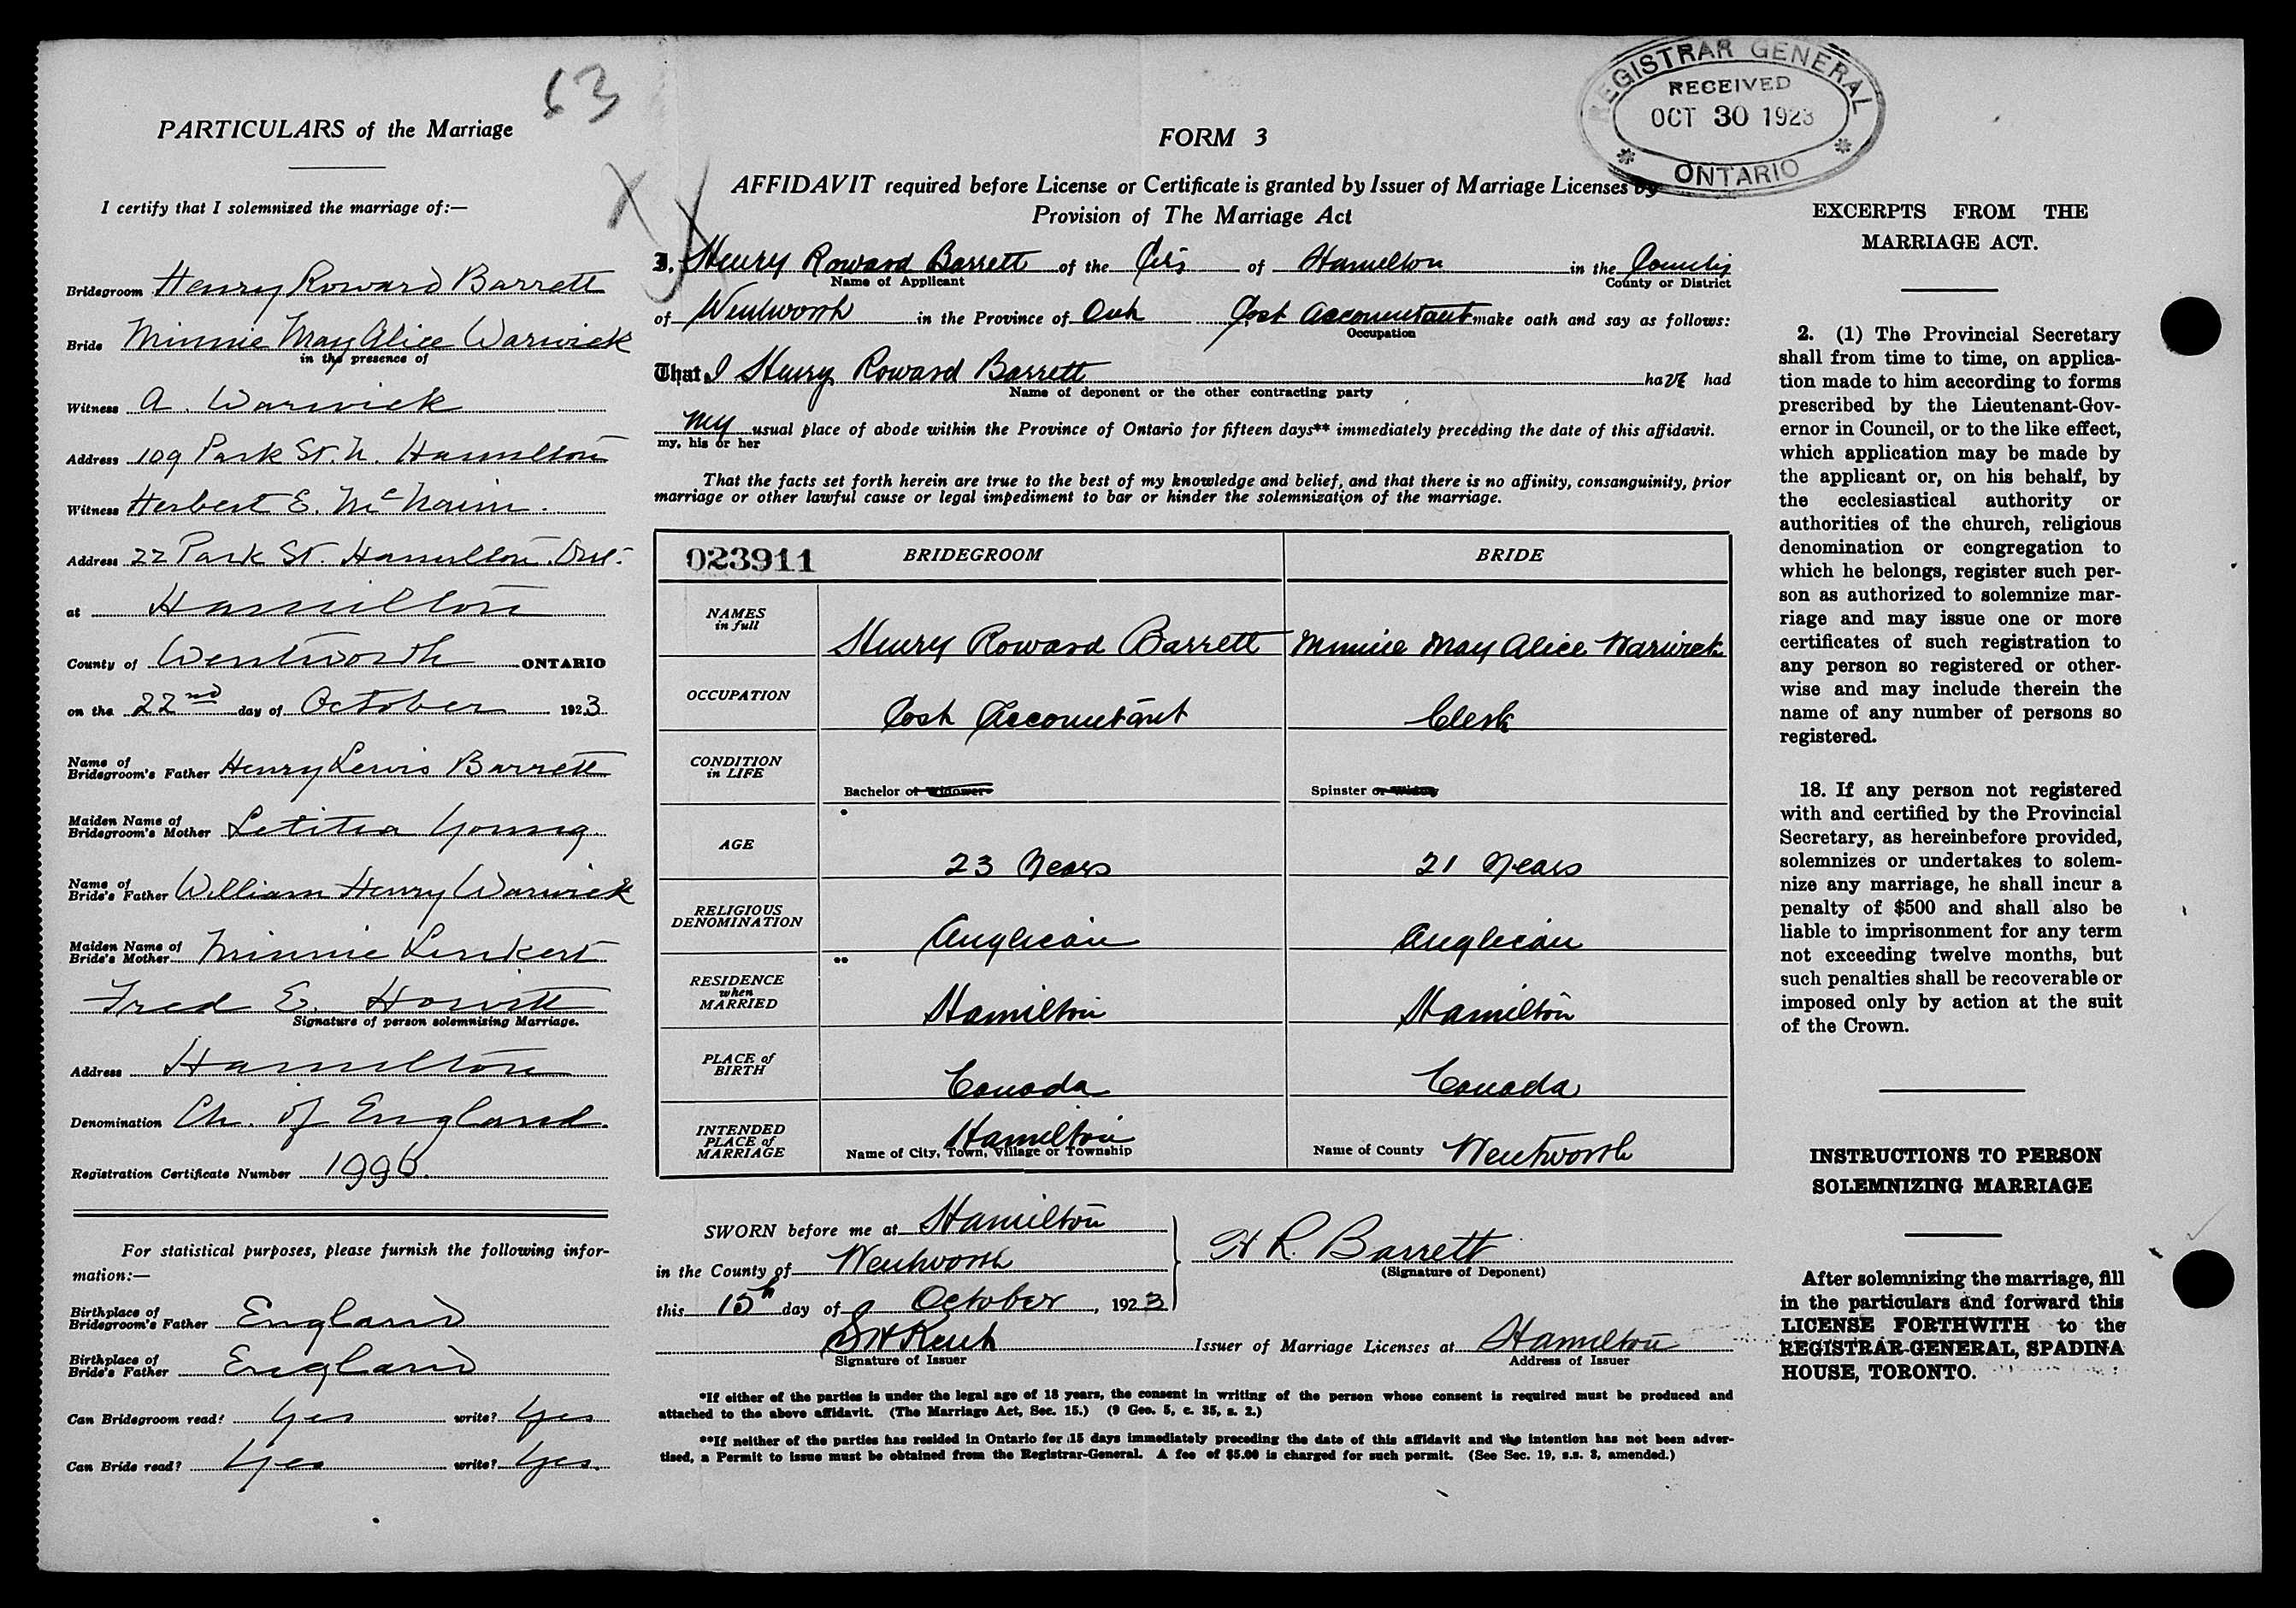 63
PARTICULARS of the Marriage
I certify that I solemnized the marriage of:—
Bridegroom Henry Roward Barrett
Bride Minnie May Alice Warwick
in the presence of
Witness A. Warwick
Address 109 Park St. N. Hamilton
Witness Herbert E. McNairn.
Address 22 Park St. Hamilton. Ont.
at Hamilton
County of Wentworth ONTARIO
on the 22nd day of October 1923
Name of
Bridegroom's Father Henry Lewis Barrett
Maiden Name of
Bridegroom's Mother Letitia Young.
Name of
Bride's Father William Henry Warwick
Maiden Name of
Bride's Mother Minnie Linkert
Fred E. Howitt
Signature of person solemnizing Marriage.
Address Hamilton
Denomination Ch. of England.
Registration Certificate Number 1996.
For statistical purposes, please furnish the following infor-
mation:—
Birthplace of
Bridegroom's Father England
Birthplace of
Bride's Father England
Can Bridegroom read? Yes write? Yes
Can Bride read? Yes write? Yes.
REGISTRAR GENERAL
RECEIVED
OCT 30 1923
* ONTARIO *
FORM 3
AFFIDAVIT required before License or Certificate is granted by Issuer of Marriage Licenses by
Provision of The Marriage Act
I, Henry Roward Barrett of the City of Hamilton in the County
Name of Applicant County or District
of Wentworth in the Province of Ont Cost Accountant make oath and say as follows:
Occupation
That I Henry Roward Barrett have had
Name of deponent or the other contracting party
My usual place of abode within the Province of Ontario for fifteen days** immediately preceding the date of this affidavit.
my, his or her
That the facts set forth herein are true to the best of my knowledge and belief, and that there is no affinity, consanguinity, prior
marriage or other lawful cause or legal impediment to bar or hinder the solemnization of the marriage.
023911 BRIDEGROOM BRIDE
NAMES
in full
Henry Roward Barrett Minnie May Alice Warwick
OCCUPATION
Cost Accountant Clerk
CONDITION
in LIFE
Bachelor or Widower Spinster or Widow
*
AGE
23 Years 21 Years
RELIGIOUS
DENOMINATION
Anglican Anglican
**
RESIDENCE
when
MARRIED
Hamilton Hamilton
PLACE of
BIRTH
Canada Canada
INTENDED
PLACE of
MARRIAGE
Hamilton
Name of City, Town, Village or Township Name of County Wentworth
SWORN before me at Hamilton
in the County of Wentworth
this 15th day of October, 1923
H R. Barrett
(Signature of Deponent)
S H Kent Issuer of Marriage Licenses at Hamilton
Signature of Issuer Address of Issuer
*If either of the parties is under the legal age of 18 years, the consent in writing of the person whose consent is required must be produced and
attached to the above affidavit. (The Marriage Act, Sec. 15.) (9 Geo. 5, c. 35, s. 2.)
**If neither of the parties has resided in Ontario for 15 days immediately preceding the date of this affidavit and the intention has not been adver-
tised, a Permit to issue must be obtained from the Registrar-General. A fee of $5.00 is charged for such permit. (See Sec. 19, s.s. 3, amended.)
EXCERPTS FROM THE
MARRIAGE ACT.
2. (1) The Provincial Secretary
shall from time to time, on applica-
tion made to him according to forms
prescribed by the Lieutenant-Gov-
ernor in Council, or to the like effect,
which application may be made by
the applicant or, on his behalf, by
the ecclesiastical authority or
authorities of the church, religious
denomination or congregation to
which he belongs, register such per-
son as authorized to solemnize mar-
riage and may issue one or more
certificates of such registration to
any person so registered or other-
wise and may include therein the
name of any number of persons so
registered.
18. If any person not registered
with and certified by the Provincial
Secretary, as hereinbefore provided,
solemnizes or undertakes to solem-
nize any marriage, he shall incur a
penalty of $500 and shall also be
liable to imprisonment for any term
not exceeding twelve months, but
such penalties shall be recoverable or
imposed only by action at the suit
of the Crown.
INSTRUCTIONS TO PERSON
SOLEMNIZING MARRIAGE
After solemnizing the marriage, fill
in the particulars and forward this
LICENSE FORTHWITH to the
REGISTRAR-GENERAL, SPADINA
HOUSE, TORONTO.